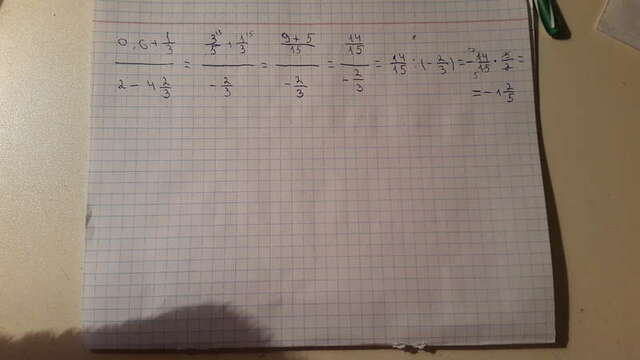 (0,6 + 1/3) / (2 - 4 2/3) = (3/5 + 1/3) / (-2/3) = ((9+5)/15) / (-2/3) = (14/15) / (-2/3) = 14/15 : (-2/3) = -14/15 · 3/2 =
= -1 2/5